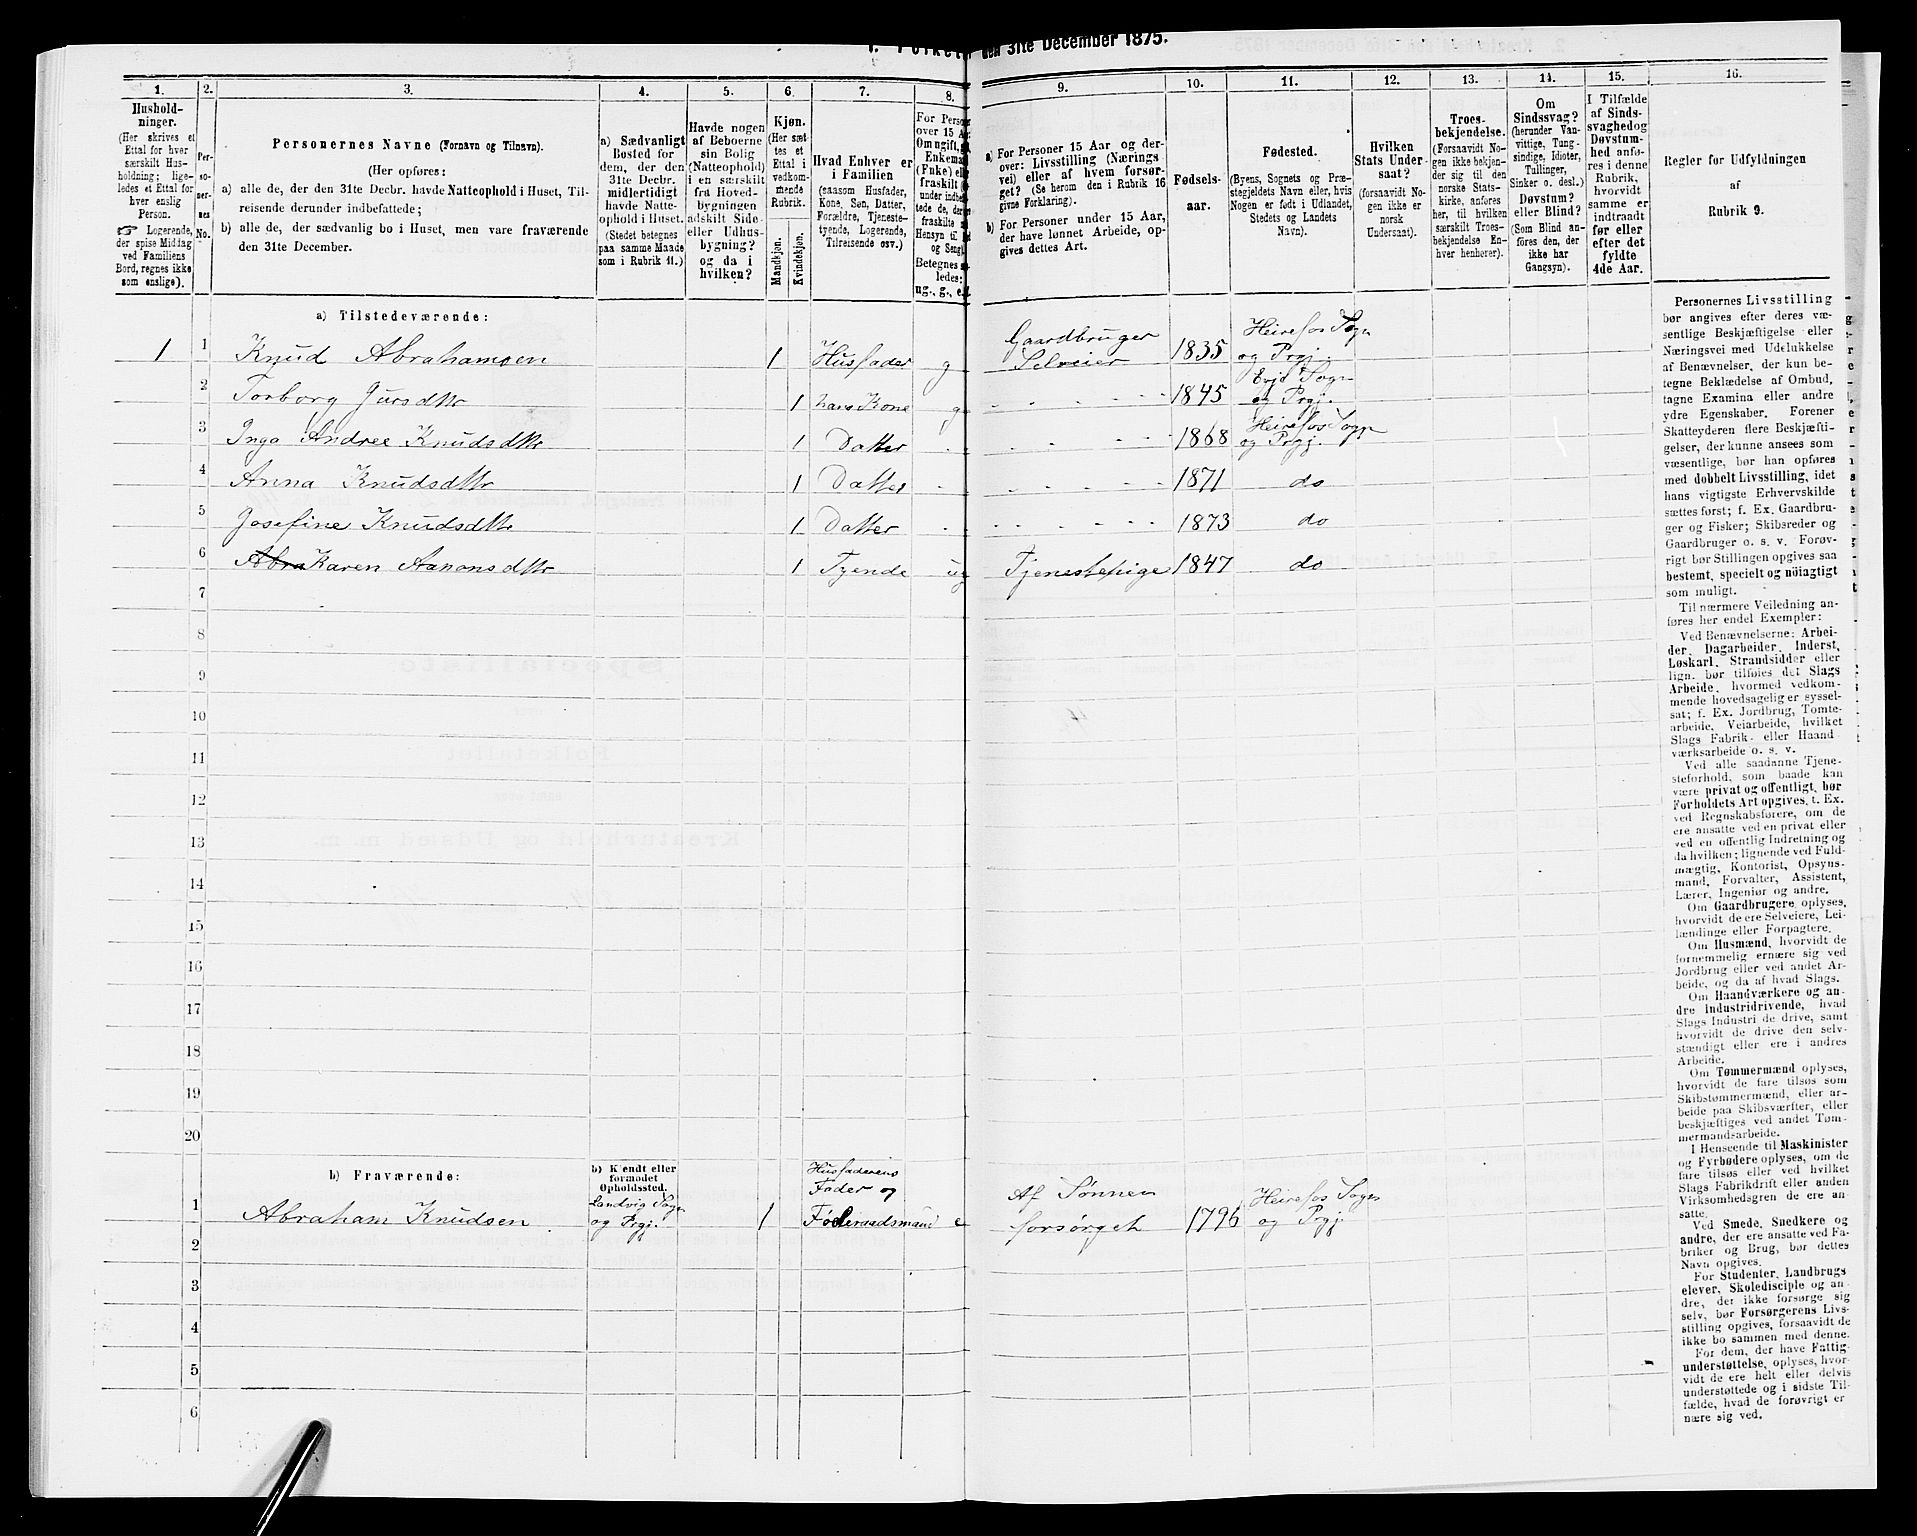 den 31te December 1875.
1.
2.
3.
4.
5.
6.
7.
8.
9.
10.
11.
12.
13.
14.
15.
16.
Hushold-
ninger.
(Her skrives et
Ettal for hver
særskilt Hus-
holdning; lige-
ledes et Ettal for
hver enslig
Person.
☞ Logerende,
der spise Middag
ved Familiens
Bord, regnes ikke
som enslige).
Per-
so-
ner-
nes
No.
Personernes Navne (Fornavn og Tilnavn).
(Her opføres:
a) alle de, der den 31te Decbr. havde Natteophold i Huset, Til-
reisende derunder indbefattede;
b) alle de, der sædvanlig bo i Huset, men vare fraværende
den 31te December.
a) Sædvanligt
Bosted for
dem, der den
31te Decbr.
midlertidigt
havde Natte-
ophold i Huset.
(Stedet betegnes
paa samme Maade
som i Rubrik 11.)
Havde nogen
af Beboerne
sin Bolig
(Natteophold)
i en særskilt
fra Hoved-
bygningen
adskilt Side-
eller Udhus-
bygning?
og da i
hvilken?
Kjøn.
(Her sæt-
tes et
Ettal i
vedkom-
mende
Rubrik.
Mandkjøn.
Kvindekjøn.
Hvad Enhver er
i Familien
(saasom Husfader,
Kone, Søn, Datter,
Forældre, Tjeneste-
tyende, Logerende,
Tilreisende osv.).
For Person
over 15 Aa
Om ugift, g
Enkema
(Fuke) el
fraskilt
Betegnes s
ledes:
ug., g., e
a) For Personer 15 Aar og der-
over: Livsstilling (Nærings
vei) eller af hvem forsør-
get? (Se herom den i Rubrik 16
givne Forklaring).
b) For Personer under 15 Aar,
der have lønnet Arbeide, op-
gives dettes Art.
Fødsels-
aar.
Fødested.
(Byens, Sognets og Præ-
stegjeldets Navn eller, hvis
Nogen er født i Udlandet,
Stedets og Landets
Navn).
Hvilken
Stats Under-
saat?
(forsaavidt No-
gen ikke er
norsk
Undersaat).
Troes-
bekjendelse.
(Forsaavidt No-
gen ikke bekjen-
der sig til den
norske Stats-
kirke, anføres
her, til hvilken
særskilt Troes-
bekjendelse En-
hver henhører).
Om
Sindssvag?
(herunder Van-
vittige, Tung-
sindige, Idioter,
Tullinger,
Sinker o. desl.)
Døvstum?
eller Blind?
(Som Blind an-
føres den, der
ikke har
Gangsyn).
I Tilfælde
af Sinds-
svaghed og
Døvstum-
hed anfø-
res i denne
Rubrik,
hvorvidt
samme er
indtraadt
før eller
efter det
fyldte
4de Aar.
Regler for Udfyldningen
af
Rubrik 9.
a) Tilstedeværende:
1 1 Knud Abrahamsen 1 Husfader g Gaardbruger Selveier 1835 Heirefos Sogn og Prgj.
2 Torborg Jursdttr 1 hans Kone g 1845 Evje Sogn og Prgj.
3 Inga Andree Knudsdttr 1 Datter 1868 Heirefos Sogn og Prgj.
4 Anna Knudsdttr 1 Datter 1871 do
5 Josefine Knudsdttr 1 Datter 1873 do
6 Abra Karen Aanonsdttr 1 Tyende ug Tjenestepige 1847 do
7
8
9
10
11
12
13
14
15
16
17
18
19
20
b) Fraværende:
b) Kjendt eller
formodet
Opholdssted.
1 Abraham Knudsen Landvig Sogn og Prgj. 1 Husfaderens Fader og Føderaadsmand e Af Sønnen forsørget 1796 Heirefos Sogn og Prgj
2
3
4
5
6
Personernes Livsstilling
bør angives efter deres væ-
sentlige Beskjæftigelse eller
Næringsvei med Udelukkelse
af Benævnelser, der kun be-
tegne Beklædelse af Ombud,
tagne Examina eller andre
ydre Egenskaber. Forener
Skatteyderen flere Beskjæfti-
gelser, der kunne ansees som
væsentlige, bør han opføres
med dobbelt Livsstilling, idet
hans vigtigste Erhvervskilde
sættes først; f. Ex. Gaardbru-
ger og Fisker; Skibsreder og
Gaardbruger o. s. v. Forøv-
rigt bør Stillingen opgives saa
bestemt, specielt og nöiagtigt
som muligt.
Til nærmere Veiledning an-
føres her endel Exempler:
Ved Benævnelserne: Arbei-
der, Dagarbeider, Inderst,
Løskarl, Strandsidder eller
lign. bør tilføies det Slags
Arbeide, hvormed vedkom-
mende hovedsagelig er syssel-
sat; f. Ex. Jordbrug, Tomte-
arbeide, Veiarbeide, hvilket
Slags Fabrik- eller Haand
værksarbeide o. s. v.
Ved alle saadanne Tjene-
steforhold, som baade kan
være privat og offentligt, bør
Forholdets Art opgives, t. Ex.
ved Regnskabsførere, om de
ere ansatte ved en privat eller
ved en offentlig Indretning og
da hvilken; lignende ved Fuld-
mægtig, Kontorist, Opsyns-
mand, Forvalter, Assistent,
Lærer, Ingeniør og andre.
Om Gaardbrugere oplyses,
hvorvidt de ere Selveiere, Lei-
lændinge eller Forpagtere.
Om Husmænd, hvorvidt de
fornemmelig ernære sig ved
Jordbrug eller ved andet Ar-
beide, og da af hvad Slags.
Om Haandværkere og an-
dre Industridrivende, hvad
Slags Industri de drive, samt
hvorvidt de drive den selv-
stændigt eller ere i andres
Arbeide.
Om Tømmermænd oplyses,
hvorvidt de fare tilsøs som
Skibstømmermænd, eller ar-
beide paa Skibsværfter, eller
beskjæftiges ved andet Tøm-
mermandsarbeide.
I Henseende til Maskinister
og Fyrbødere oplyses, om de
fare tilsøs eller ved hvilket
Slags Fabrikdrift eller anden
Virksomhedsgren de ere an-
satte.
Ved Smede, Snedkere og
andre, der ere ansatte ved Fa-
briker og Brug, bør dettes
Navn opgives.
For Studenter, Landbrugs
elever, Skoledisciple og an-
dre, der ikke forsørge sig
selv, bør Forsørgerens Livs-
stilling opgives, forsaavidt de
ikke bo sammen med denne.
For dem, der have Fattig-
understøttelse, oplyses, hvor-
vidt de ere helt eller delvis
understøttede og i sidste Til-
fælde, hvad de forøvrigt er
nære sig ved.